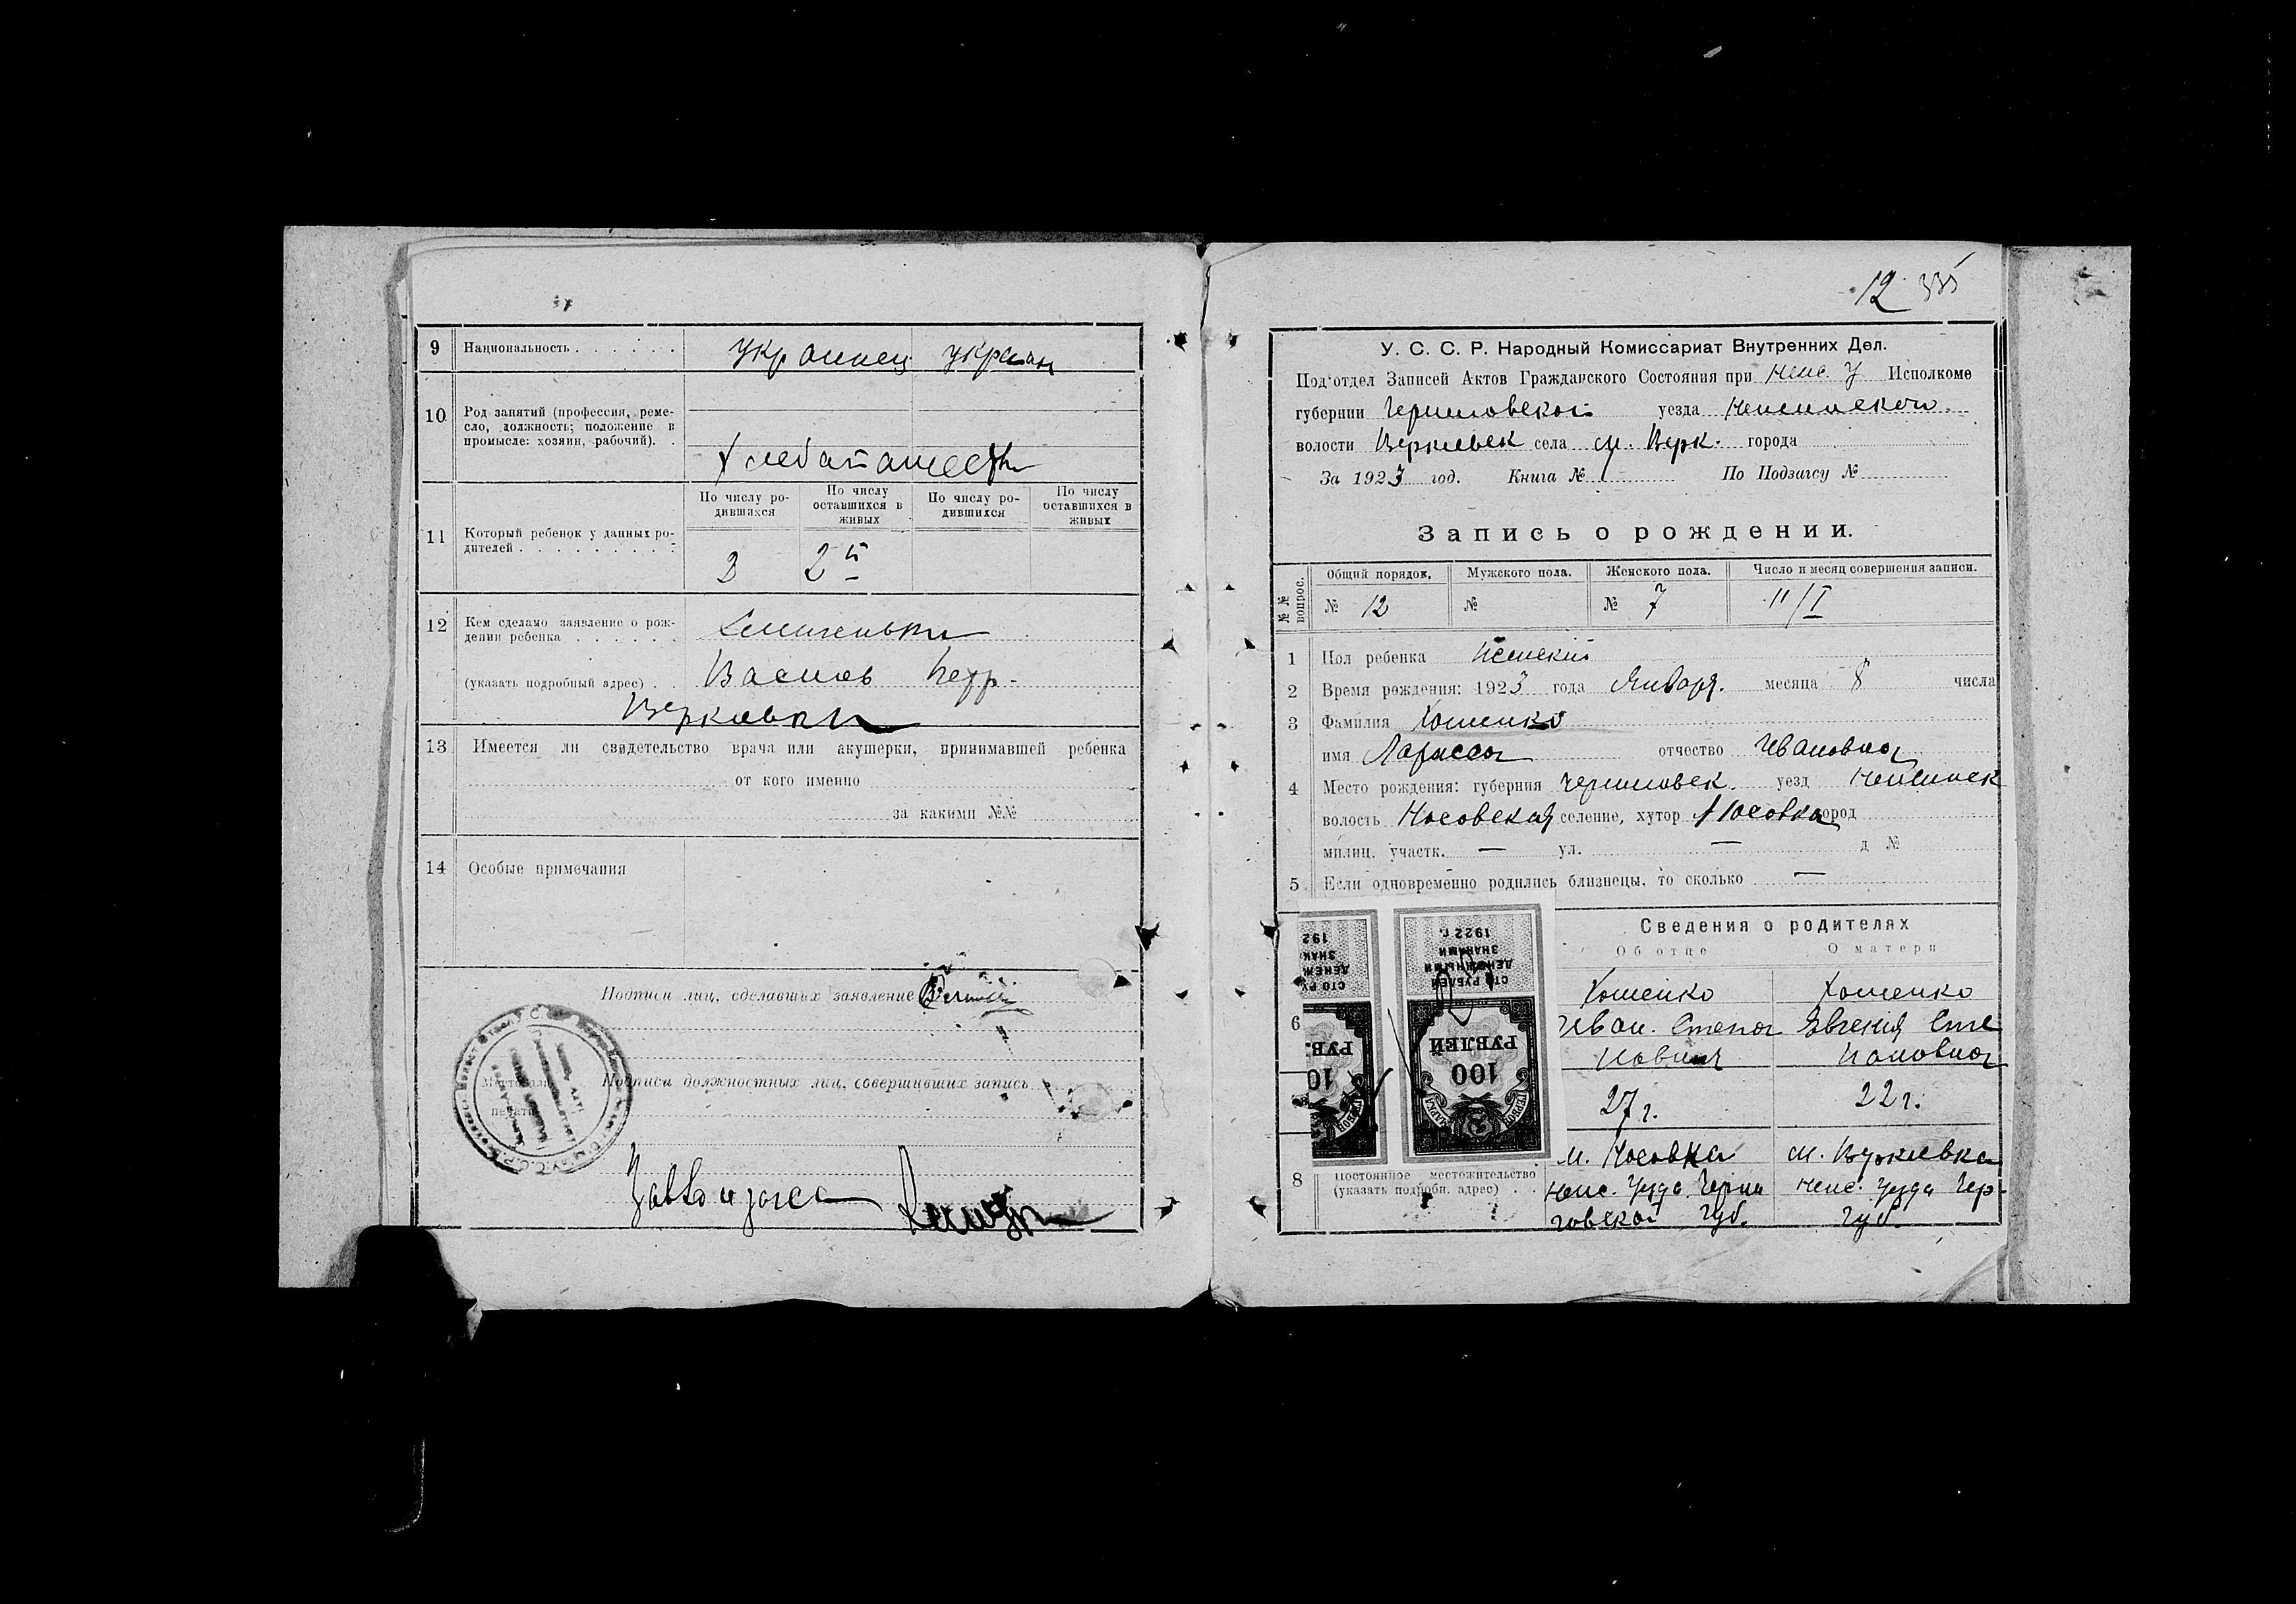 9 Национальность . . . . . . украинец украин
10 Род занятий (профессия, реме-
сло, должность; положение в
промысле: хозяин, рабочий). .
хлебопашество
11 Который ребенок у данных ро-
дителей . . . . . . . . .
По числу ро-
дившихся
По числу
оставшихся в
живых
По числу ро-
дившихся
По числу
оставшихся в
живых
2 2
12 Кем сделано заявление о рож-
дении ребенка . . . . . .
(указать подробный адрес) . .
13 Имеется ли свидетельство врача или акушерки, принимавшей ребенка
от кого именно
за какими №№
14 Особые примечания
Подписи лиц, сделавших заявление
Подписи должностных лиц, совершивших запись
Место для
печати
12
У. С. С. Р. Народный Комиссариат Внутренних Дел.
Под'отдел Записей Актов Гражданского Состояния при Неж. У Исполкоме
губернии Черниговской уезда Нежинском
волости Веркиевск села м. Верк. города
За 1923 год. Книга № 1 По Подзагсу №
Запись о рождении.
№№ вопрос.
Общий порядок. Мужского пола. Женского пола. Число и месяц совершения записи.
№ 12 № № 7 11/I
1 Пол ребенка Женский
2 Время рождения: 1923 года Января месяца 8 числа
3 Фамилия Хоменко
имя Лариса отчество Ивановна
4 Место рождения: губерния Черниговск. уезд Нежинск
волость Носовская селение, хутор Носовка город
милиц. участк. — ул. — д №
5 Если одновременно родились близнецы, то сколько —
Сведения о родителях
Об отце О матери
СТО РУБЛЕЙ
ДЕНЕЖНЫМИ
ЗНАКАМИ
1922 г.
100
РУБЛЕЙ
6
Хоменко Хоменко
Иван Степа Евгения Сте
нович пановна
27 г. 22 г.
8 Постоянное местожительство
(указать подробн. адрес) . .
м. Носовка м. Веркиевка
Неж. уезда Черни Неж. уезда Чер-
говской губ. губ.